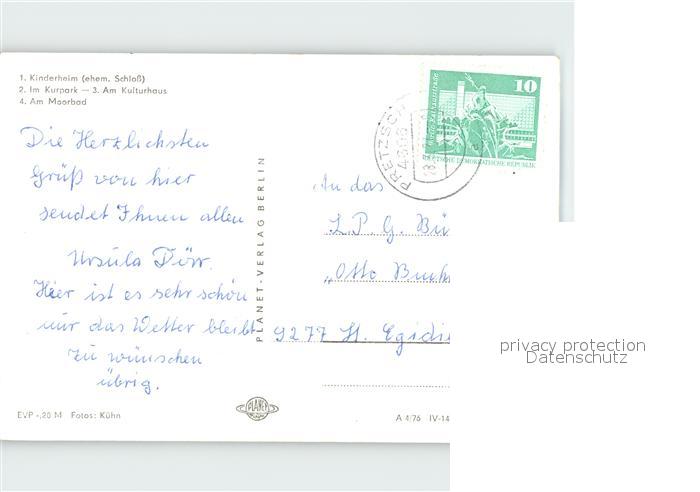 1. Kinderheim (ehem. Schloß)
2. Im Kurpark — 3. Am Kulturhaus
4. Am Moorbad
Die Herzlichsten
Grüß von hier
sendet Ihnen allen
Ursula Dörr.
Hier ist es sehr schön
nur das Wetter bleibt
zu wünschen
übrig.
EVP -,20 M Fotos: Kühn
PLANET-VERLAG BERLIN
PLANET
10
DEUTSCHE DEMOKRATISCHE REPUBLIK
PRETZSCH
An das
L.P.G. Bü
„Otto Buch
9277 St. Egidi
A 4/76 IV-14
privacy protection
Datenschutz